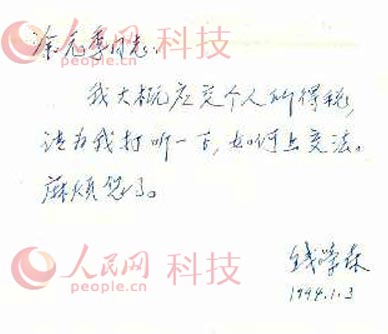 涂元季同志:
我大概应交个人所得税,
请为我打听一下,如何上交法。
麻烦您了。
钱学森
1994.1.3
人民网 科技
人民网 科技
人民网 科技